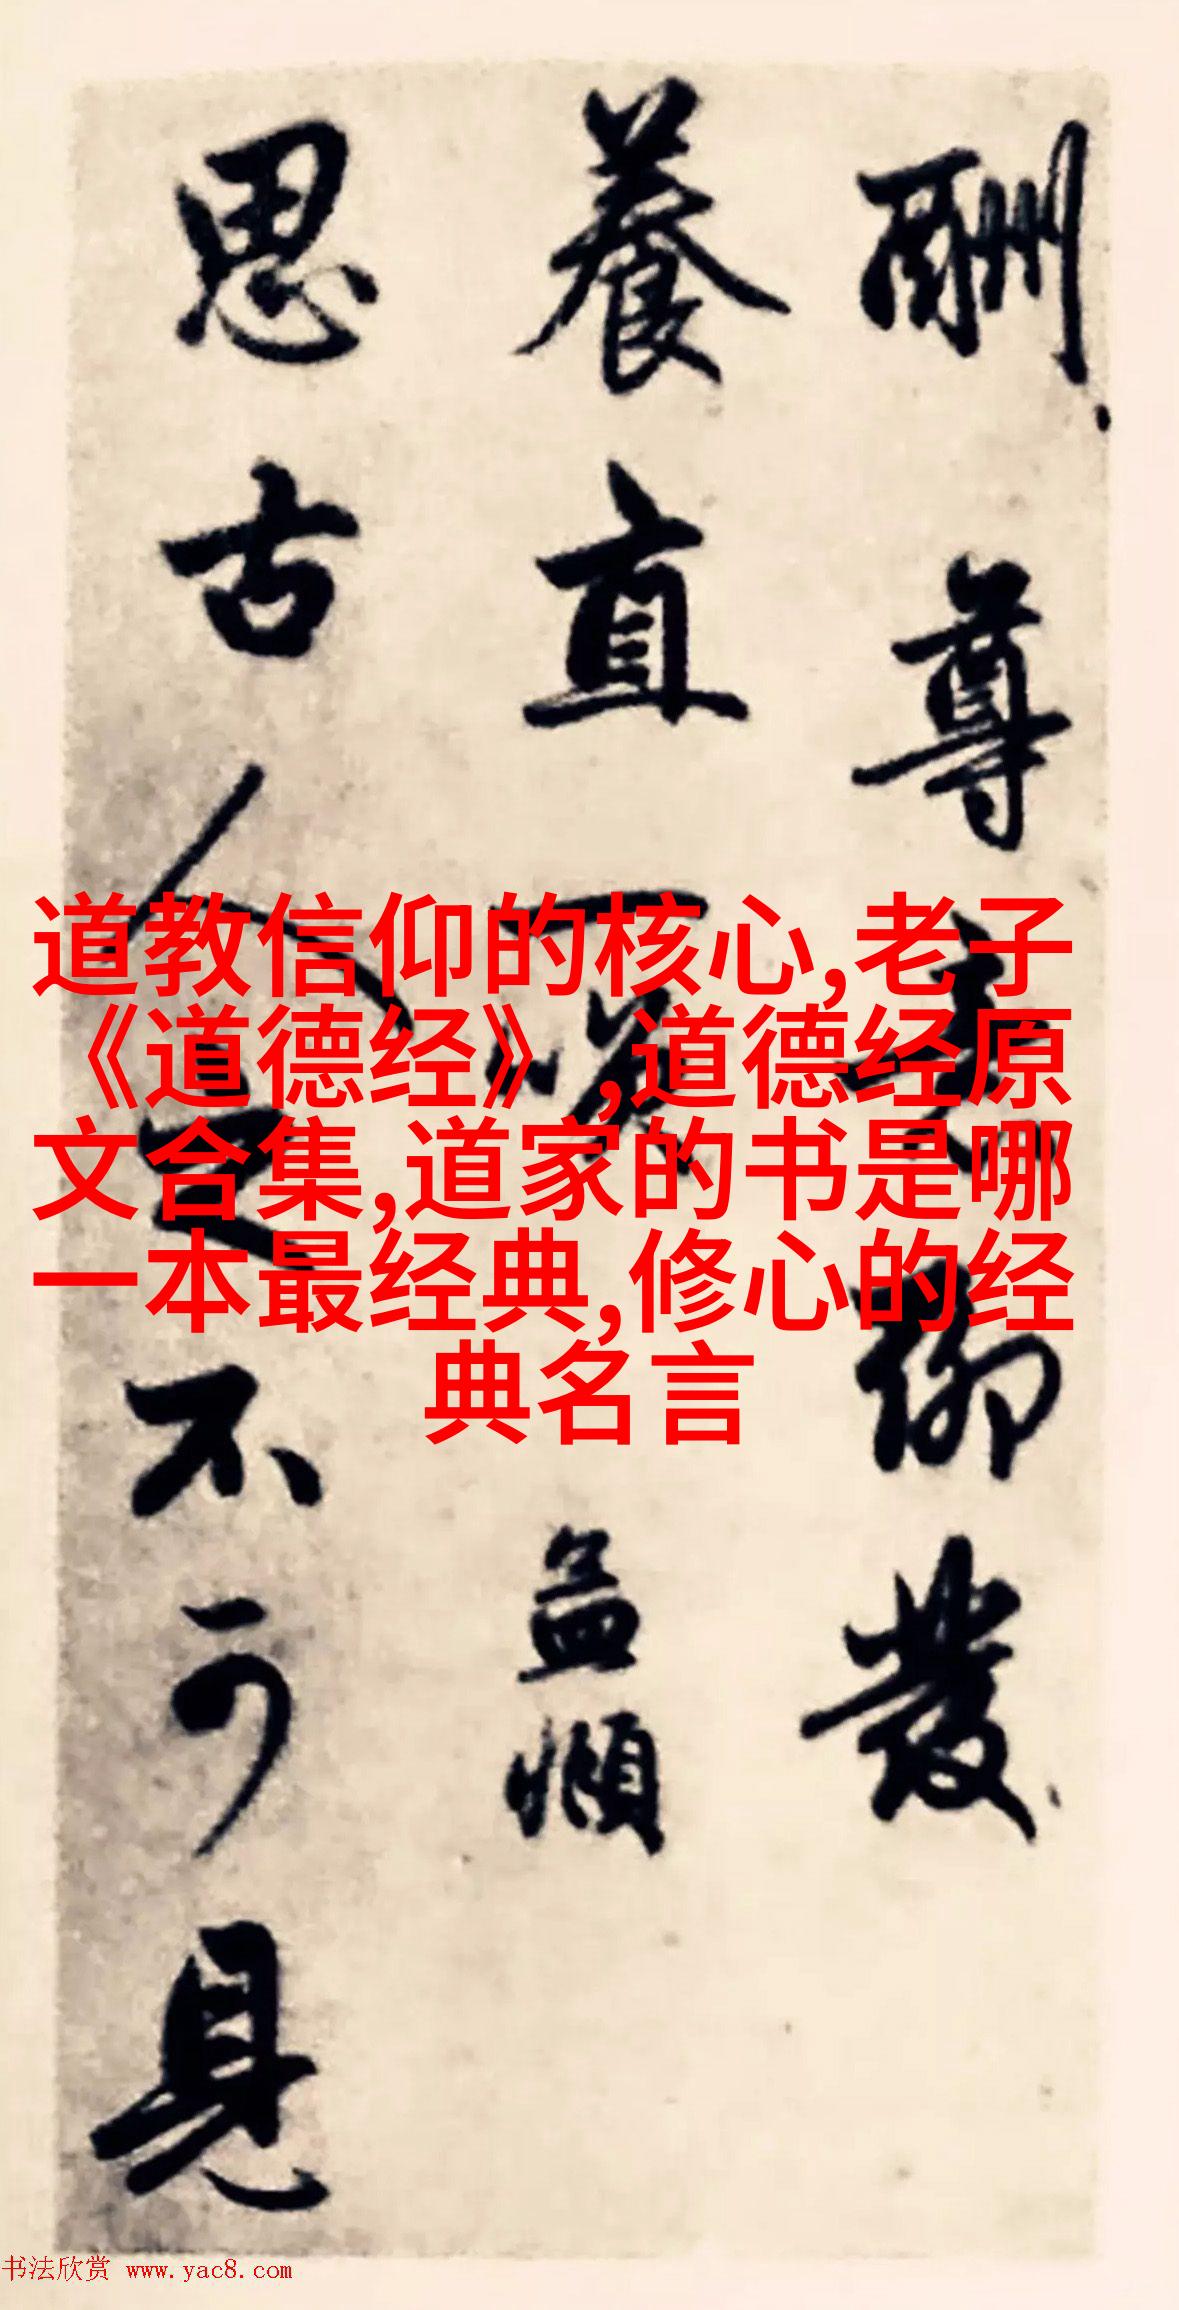 酬尊聊發
養直孟頫
思古人之不可見
道教信仰的核心,老子
《道德经》,道德经原
文合集,道家的书是哪
一本最经典,修心的经
典名言
书法欣赏 www.yac8.com